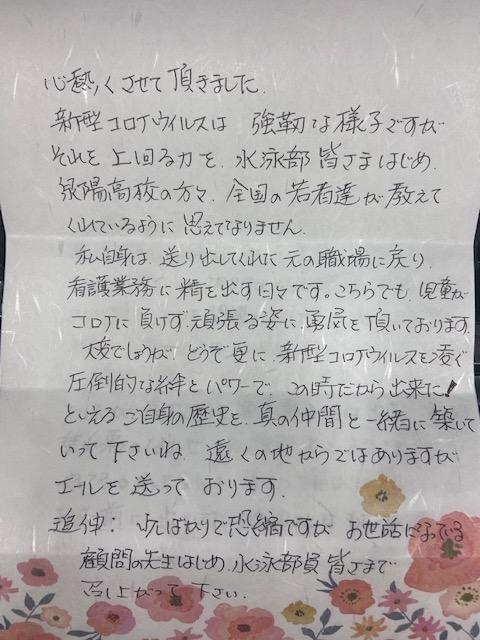 心熱くさせて頂きました。
新型コロナウイルスは 強靭な様子ですが
それを上回る力を、水泳部皆さまはじめ、
泉陽高校の方々、全国の若者達が教えて
くれているように思えてなりません。
私自身は、送り出してくれた元の職場に戻り、
看護業務に精を出す日々です。こちらでも、児童が
コロナに負けず頑張る姿に勇気を頂いております。
大変でしょうが、どうぞ更に、新型コロナウイルスを凌ぐ
圧倒的な絆とパワーで、この時だから出来た!
といえるご自身の歴史を、真の仲間と一緒に築いて
いって下さいね。遠くの地からではありますが
エールを送っております。
追伸：少しばかりで恐縮ですが お世話になっている
顧問の先生はじめ、水泳部員皆さまで
召し上がって下さい。